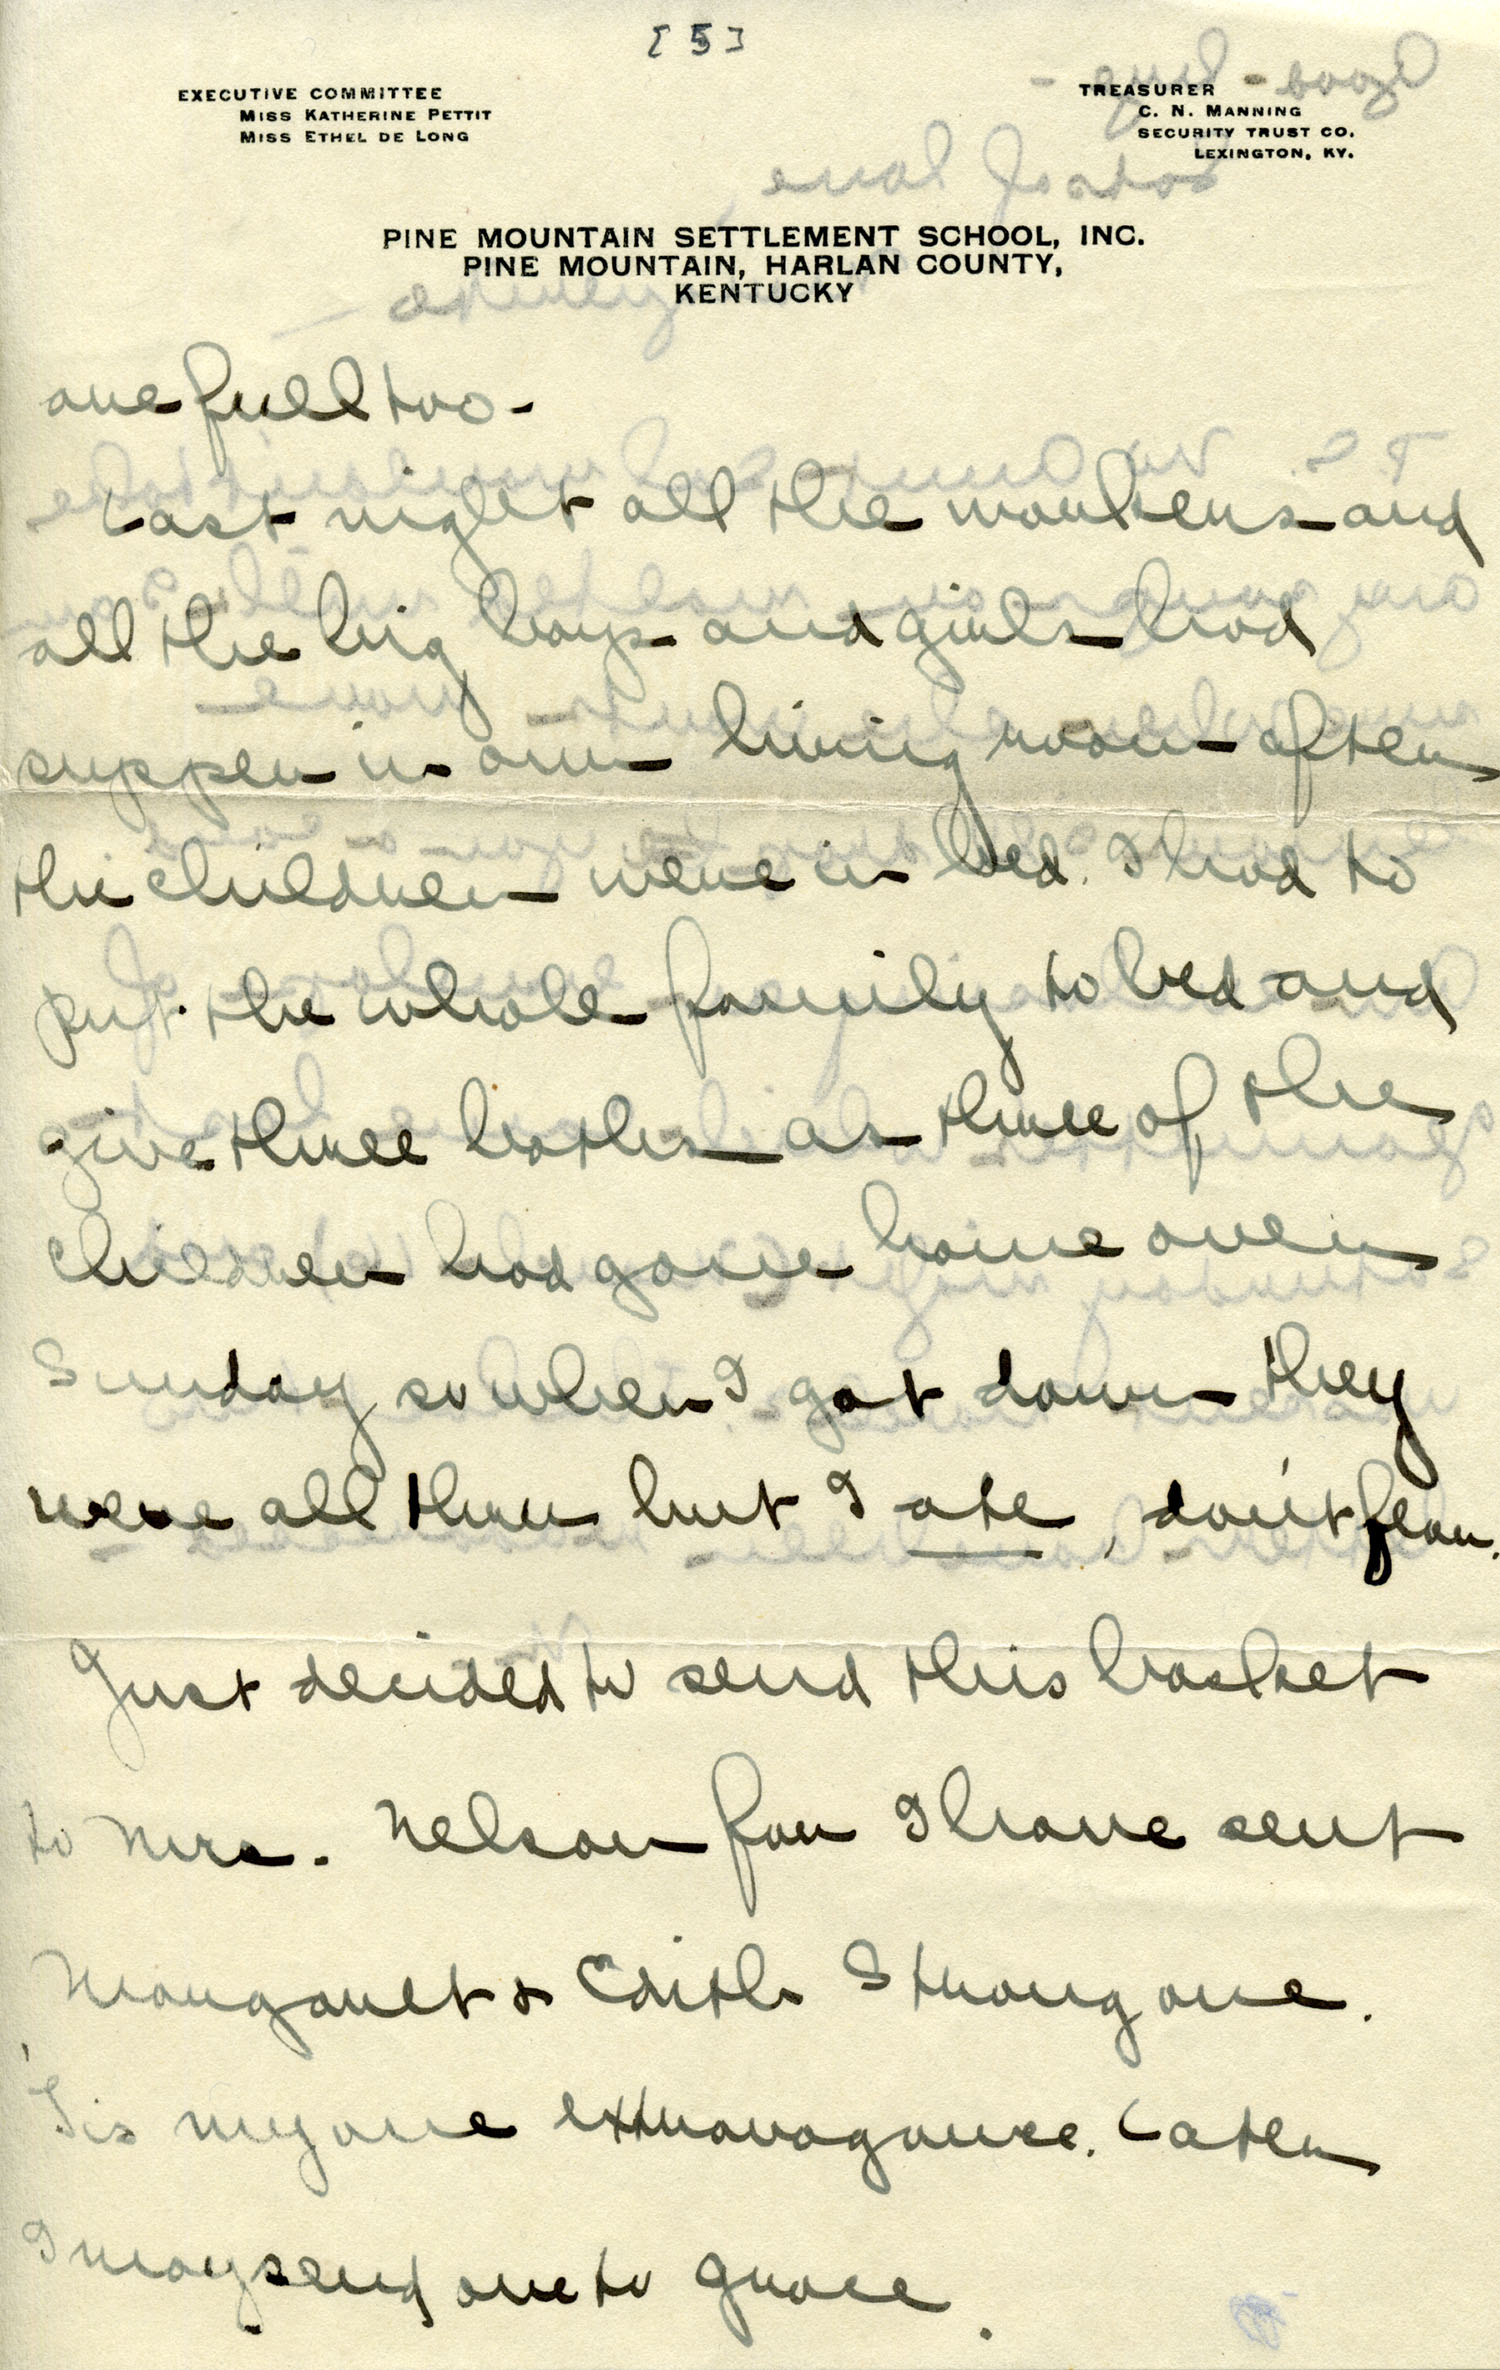 [5]
EXECUTIVE COMMITTEE
MISS KATHERINE PETTIT
MISS ETHEL DE LONG
TREASURER
C. N. MANNING
SECURITY TRUST CO.
LEXINGTON, KY.
PINE MOUNTAIN SETTLEMENT SCHOOL, INC.
PINE MOUNTAIN, HARLAN COUNTY,
KENTUCKY
are full too -
Last night all the workers and
all the big boys and girls had
supper in our living room after
the children were in bed. I had to
put the whole family to bed and
give three baths as three of the
children had gone home over
Sunday so when I got down they
were all thru but I ate, don't fear.
Just decided to send this basket
to Mrs. Nelson for I have sent
Margaret & Edith Strong one.
'Tis my one extravagance. Later
I may send one to Grace.